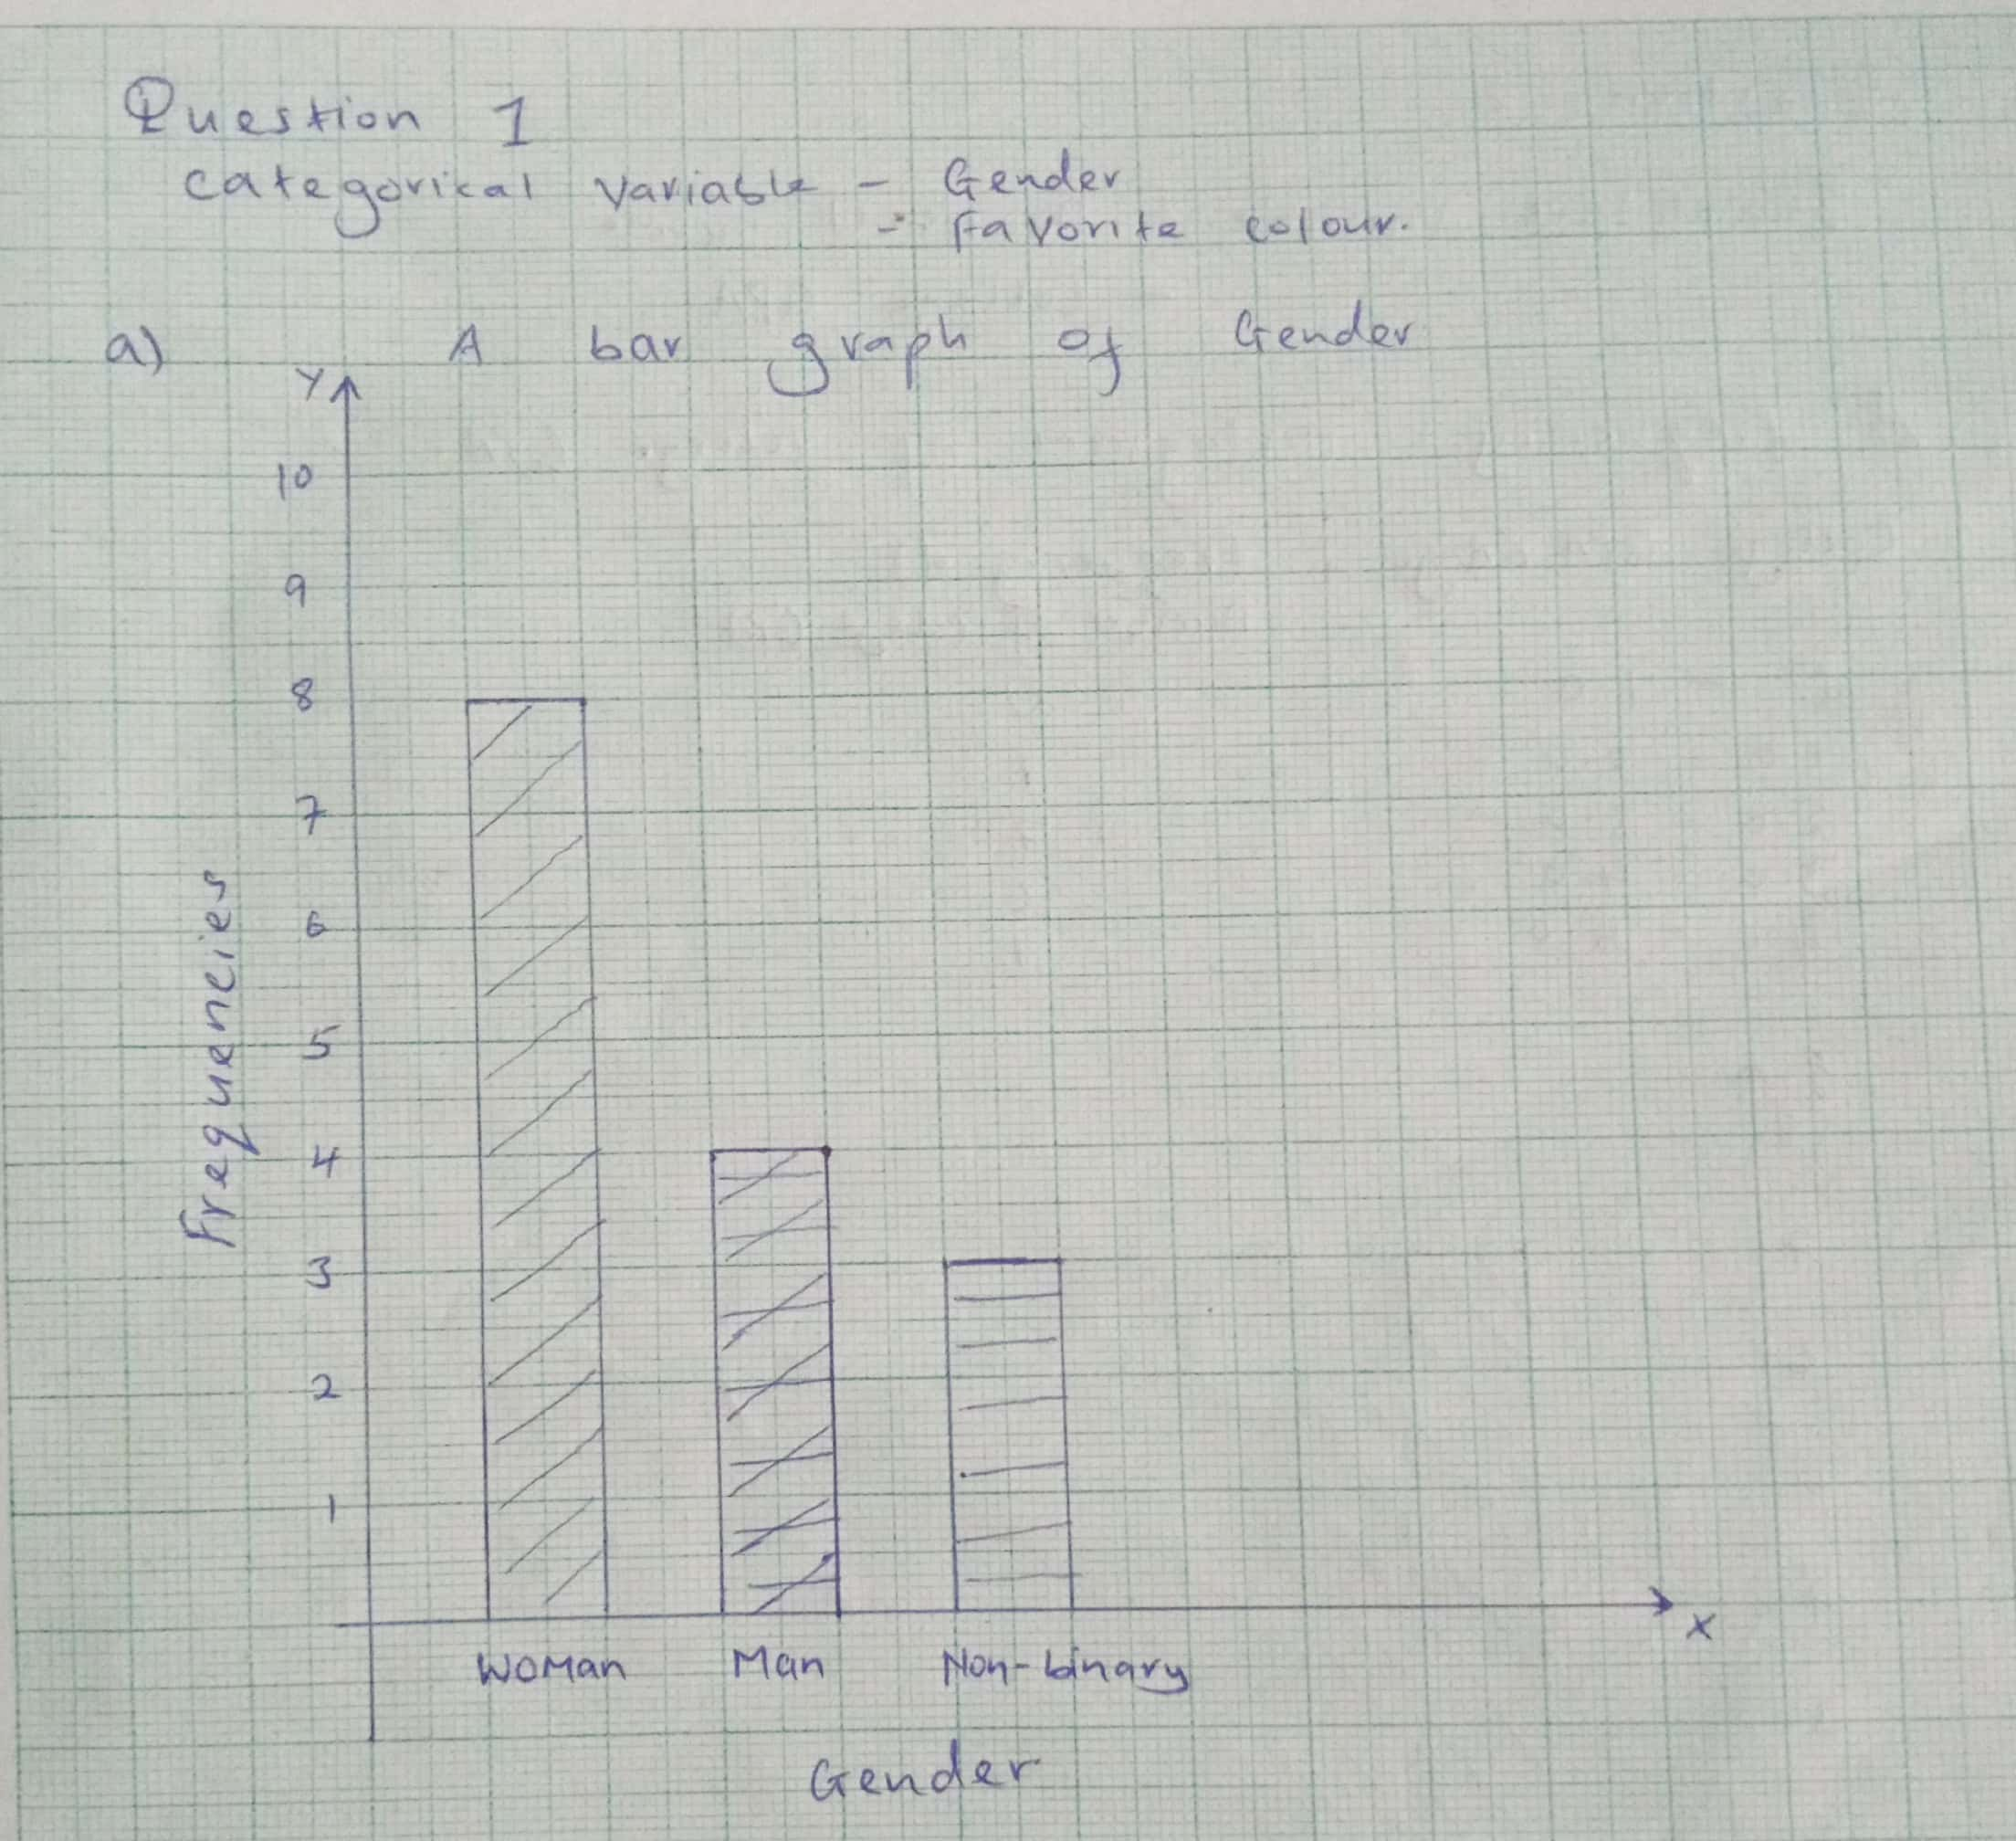 Question 1
categorical variable - Gender
- Favorite colour.
a) A bar graph of Gender
Y
10
9
8
7
6
5
4
3
2
1
Frequencies
X
Woman Man Non-binary
Gender